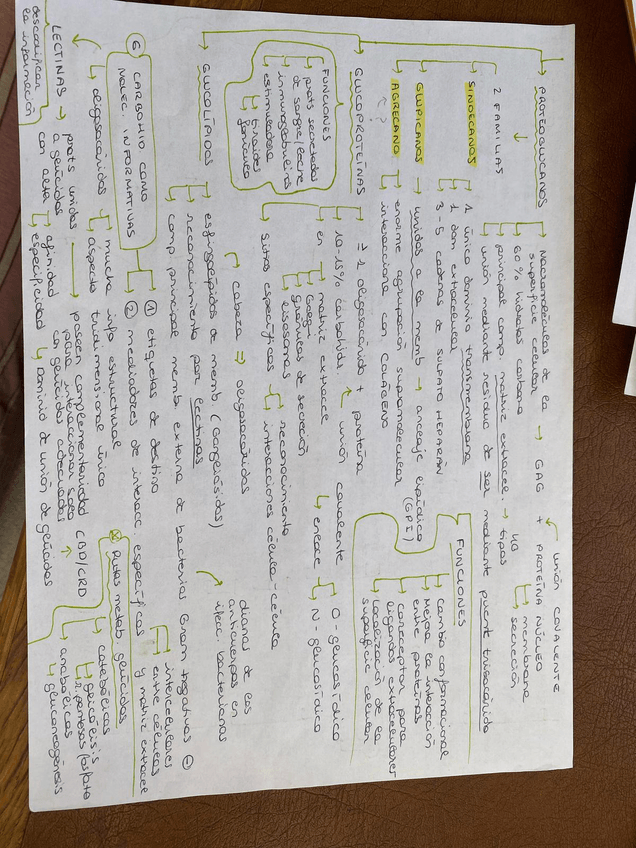 PROTEOGLUCANOS
Macromoléculas de la superficie celular → GAG + PROTEÍNA NÚCLEO
unión COVALENTE
60% hidratos carbono
principal comp. matriz extracel. → tipos
membrana
secreción
unión mediante residuo de ser mediante puente trisacárido
2 FAMILIAS
SINDECANOS
1 único dominio transmembrana
1 dom extracelular
3-5 cadenas de SULFATO HEPARÁN
GLUPICANOS → unidos a la memb → anclaje lipídico (GPI)
AGRECANO
¿?
enorme agrupación supramolecular
interacciona con COLÁGENO
FUNCIONES
Cambio conformacional
Mejora la interacción entre proteínas
Correceptor para ligandos extracelulares
Localización de la superficie celular
GLUCOPROTEÍNAS
≥ 1 oligosacárido + proteína
unión covalente
enlace
O-glucosídico
N-glucosídico
10-15% carbohid.
en
matriz extrace
Golgi
gránulos de secreción
lisosomas
sitios específicos
reconocimiento
interacciones célula-célula
FUNCIONES
prots secretadas de sangre/leche
inmunoglobulinas
estimuladora
tiroides
folículo
GLUCOLÍPIDOS
cabeza ⇒ oligosacáridos
esfingolípidos de memb (Gangliósidos)
reconocimiento por lectinas
comp principal memb. externa de bacterias Gram negativas ⊖
dianas de los anticuerpos en ifec. bacterianas
⑥ CARBOHID COMO MOLEC. INFORMATIVAS
① etiquetas de destino
② mediadores de interacc específicas
intercelulares
entre células y matriz extracel
oligosacáridos
mucha info estructural
aspecto tridimensional único
LECTINAS → prots unidas a glúcidos con alta
afinidad
especificidad
descodifican la información
poseen complementariedad para interaccionar solo con glúcidos adecuados
CBD/CRD
dominio de unión de glúcidos
Rutas metab glúcidos
catabólicas
glicólisis
pentosas fosfato
anabólicas
gluconeogénesis